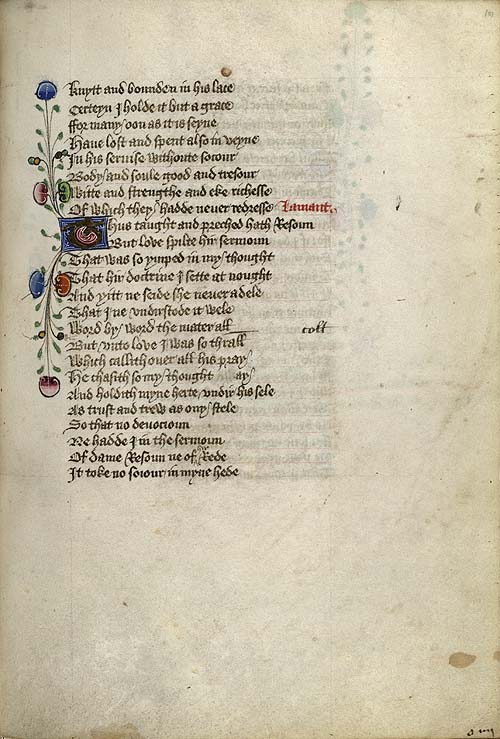 Knytt and bounden in his lace
Certeyn I holde it but a grace
ffor many oon as it is seyne
Haue lost and spent also in veyne
In his seruise withoute socour
Body and soule good and tresour
Witte and strengthe and eke richesse
Of which they hadde neuer redresse Lamant
Thus taught and preched hath Resoun
But Loue spilte hir sermoun
That was so ymped in my thought
That hir doctrine I sette at nought
And yitt ne seide she neuer a dele
That I ne vndirstode it wele
Word by word the mater all
But vnto loue I was so thrall
Which callith ouer all his pray
He chasith so my thought ay
And holdith myne herte vndir his sele
As trust and trew as ony stele
So that no deuocioun
Ne hadde I in the sermoun
Of dame Resoun ne of hir Rede
It toke no soiour in myne hede